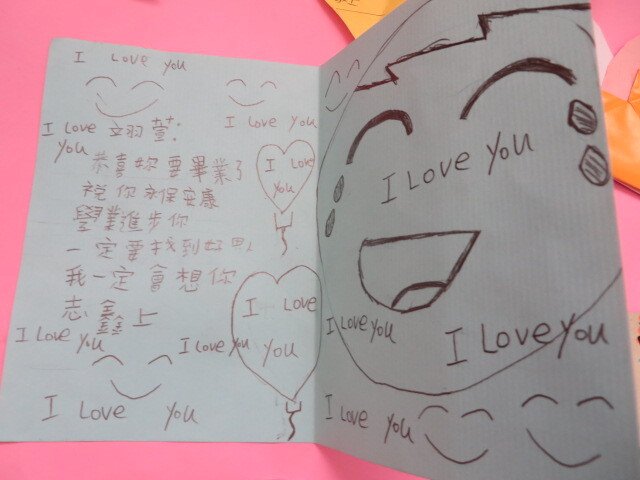 I Love You
I Love 翊萱:
You
I Love You
恭喜妳要畢業了
祝你永保安康
學業進步你
一定要找到好
我一定會想你
志鑫上
I Love
You
I Love
You
I Love You
I Love You
I Love You
I Love You
I Love You
I Love You
I Love You